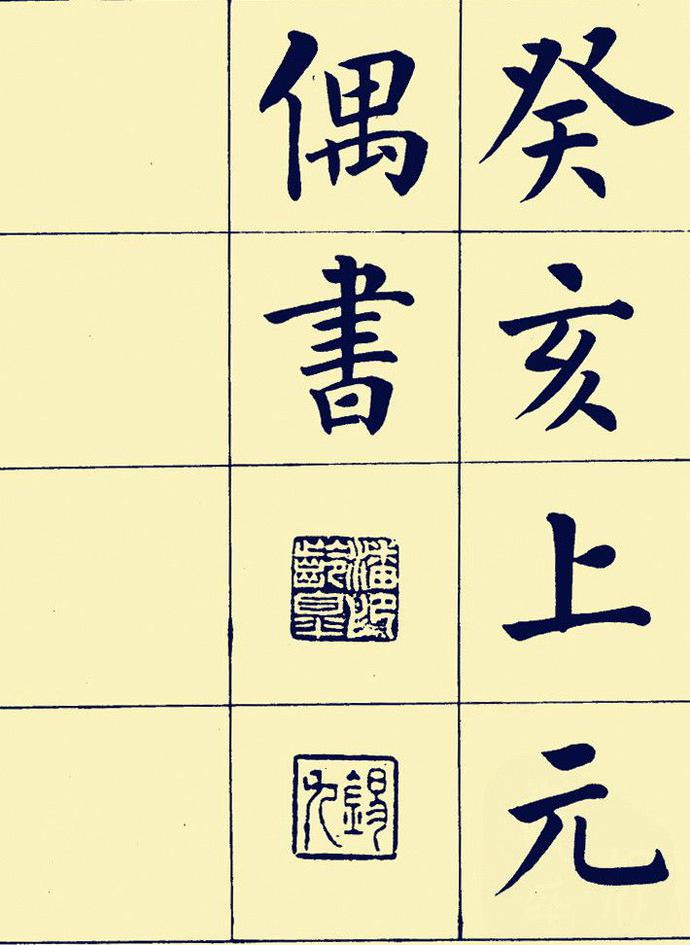 癸亥上元
偶書
潘齡皋印
錫九